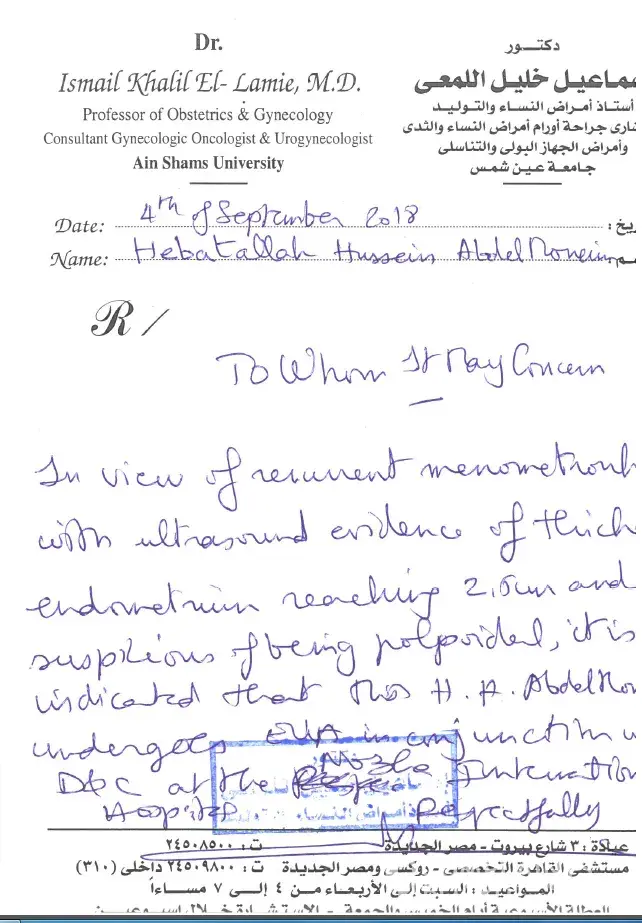 Dr.
Ismail Khalil El- Lamie, M.D.
Professor of Obstetrics & Gynecology
Consultant Gynecologic Oncologist & Urogynecologist
Ain Shams University
دكتـــور
سماعيل خليل اللمعى
أستاذ أمراض النساء والتوليد
شارى جراحة أورام أمراض النساء والثدى
وأمراض الجهاز البولى والتناسلى
جامعة عين شمس
Date: 4th of September 2018
Name: Hebatallah Hussein Abdel Moneim
R/
To Whom It May Concern
In view of recurrent menometrorrh
with ultrasound evidence of thick
endometrium reaching 2,5cm and
suspicious of being polpoidal, it is
indicated that this H. A. Abdel Mon
undergoes EUA in conjunction w
D&C at the Nozha Internation
Hospital Respectfully
عيادة : ٣ شارع بيروت - مصر الجديدة ت : ٢٤٥٠٨٥٠٠
مستشفى القاهرة التخصصى - روكسى ومصر الجديدة ت : ٢٤٥٠٩٨٠٠ داخلى (٣١٠)
المواعيد : السبت إلى الأربعاء من ٤ إلى ٧ مساءاً
العطلة الأسبوعية أيام الخميس والجمعة - الاستشارة خلال أسبوعين